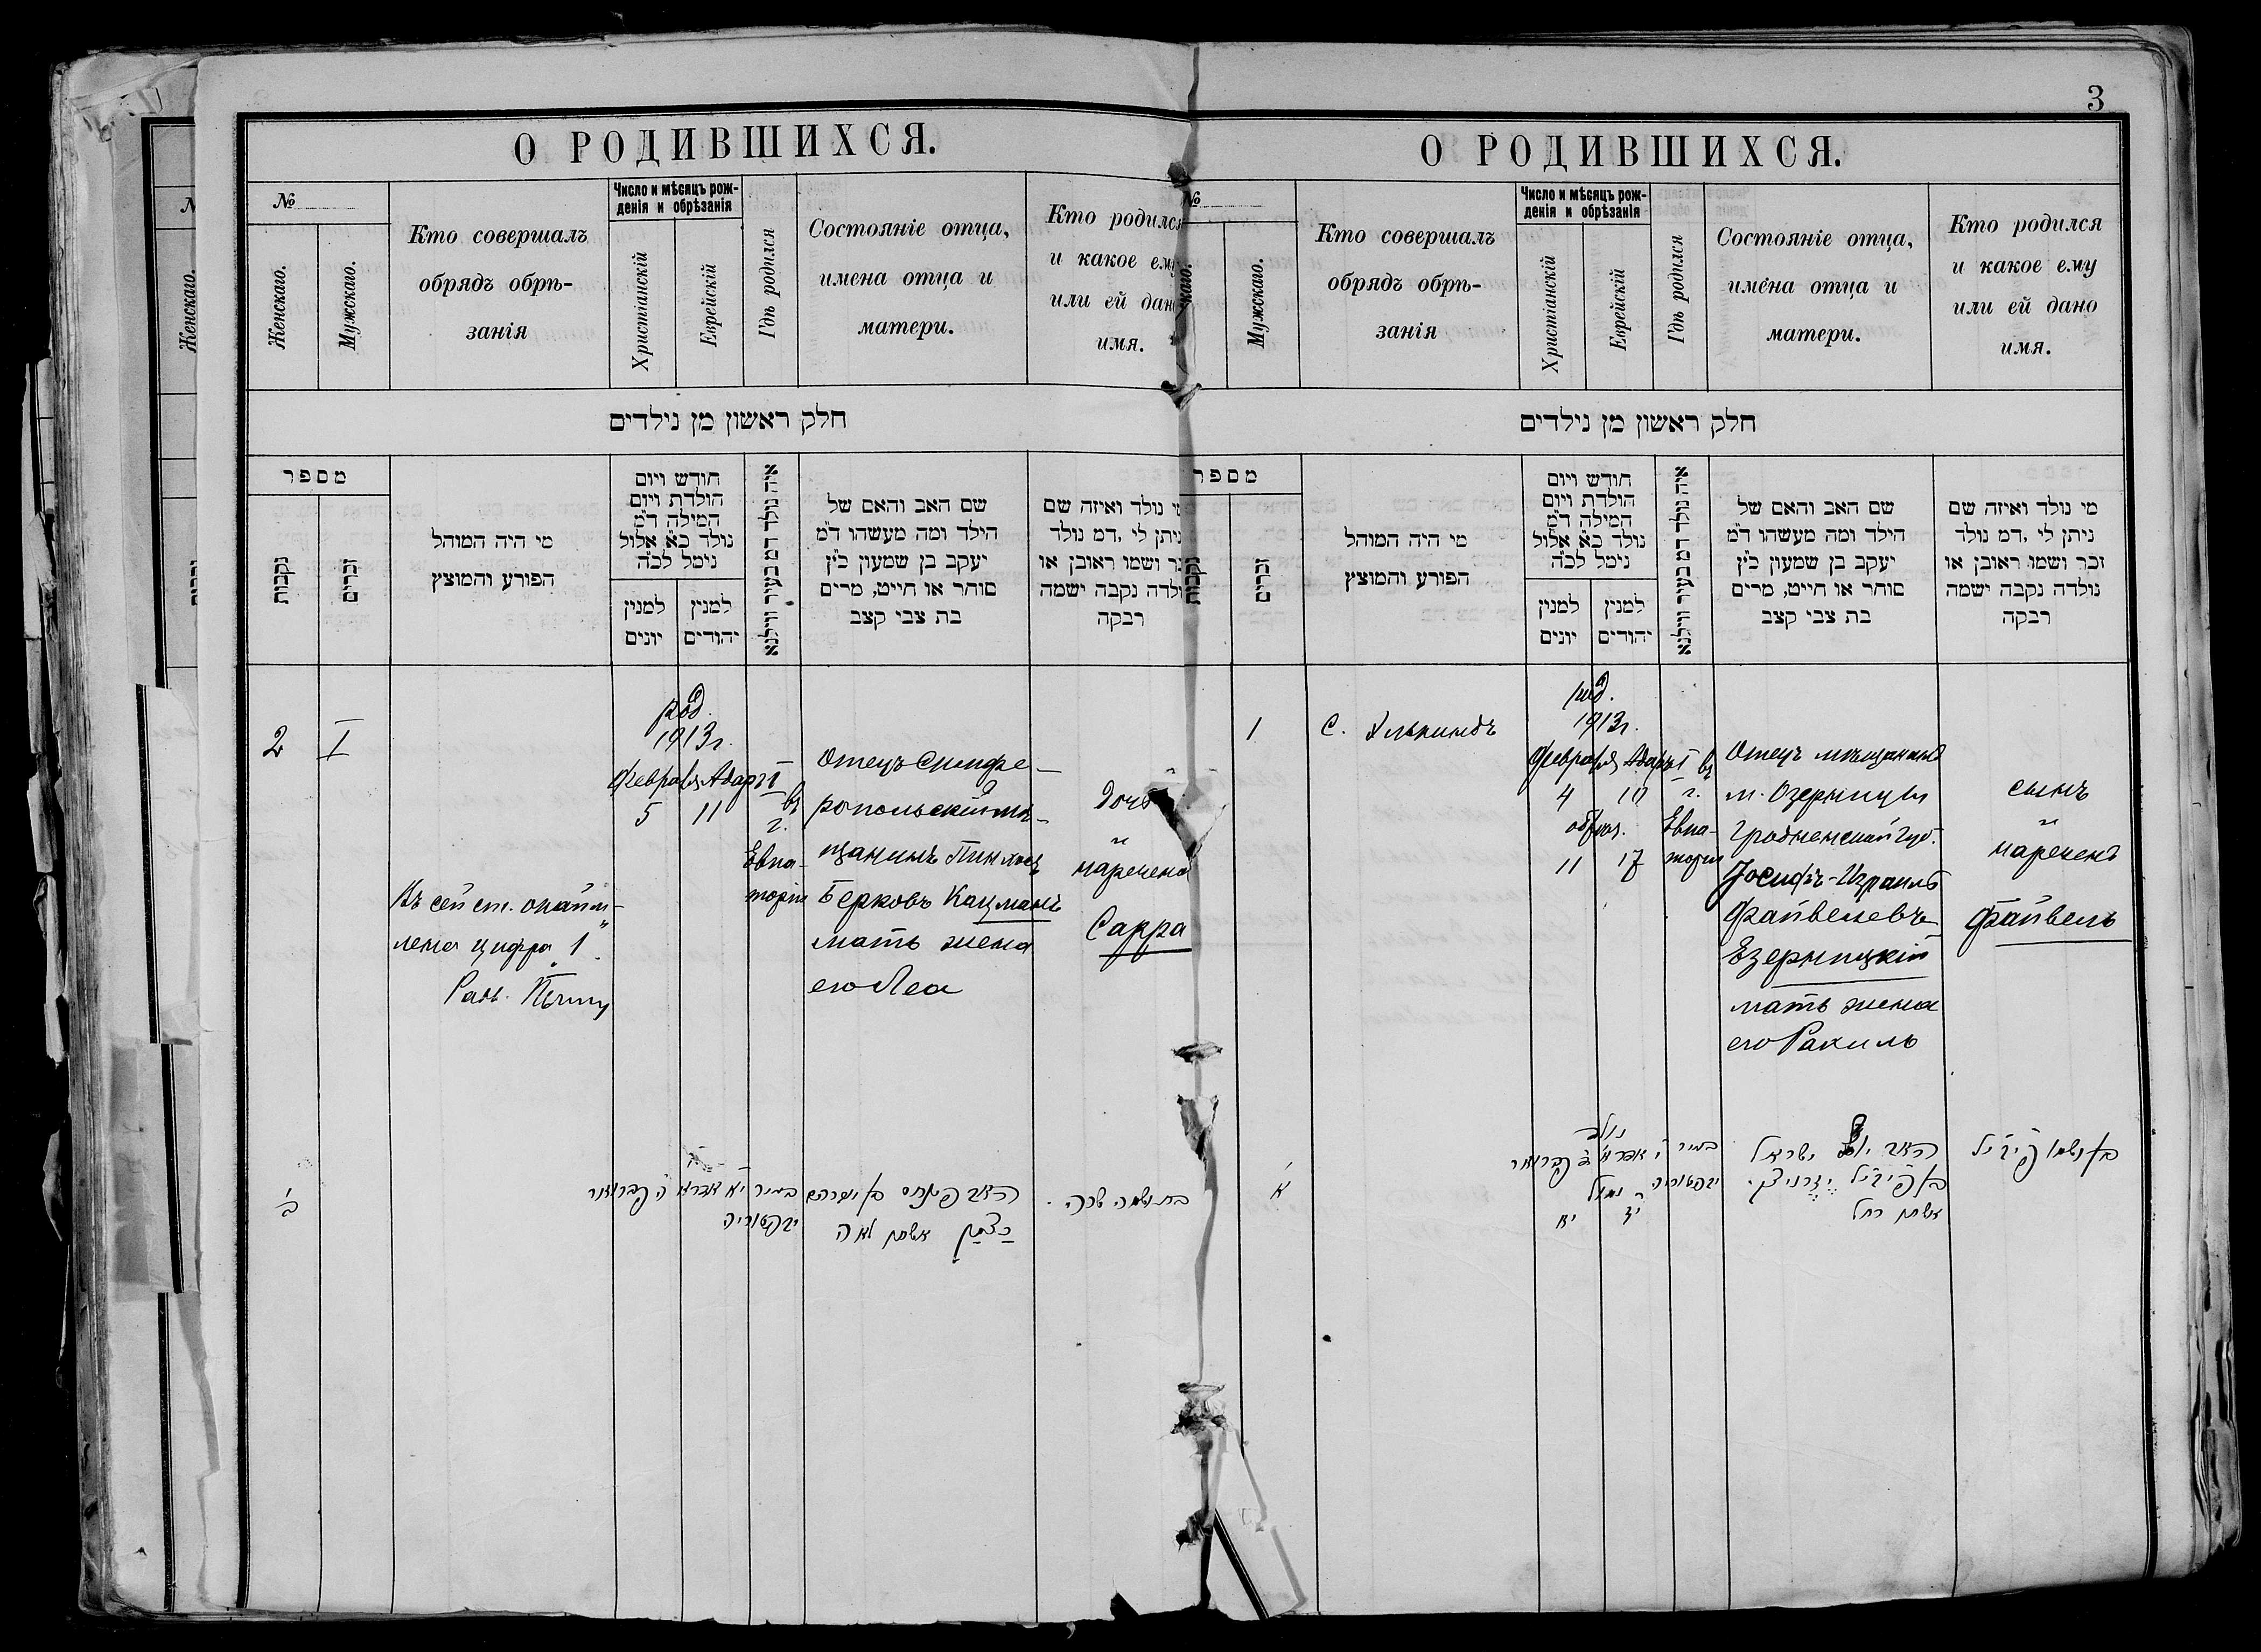 3
О РОДИВШИХСЯ.
№
Женскаго.
Мужскаго.
Кто совершалъ
обрядъ обрѣ-
занія
Число и мѣсяцъ рож-
денія и обрѣзанія
Христіанскій
Еврейскій
Гдѣ родился
Состояніе отца,
имена отца и
матери.
Кто родился
и какое ему
или ей дано
имя.
חלק ראשון מן נילדים
מספר
נקבות
זכרים
מי היה המוהל
הפורע והמוצץ
חודש ויום
הולדת ויום
המילה ד״מ
נולד כ״א אלול
נימל לכ״ה
למנין
יונים
למנין
יהודים
איה נולד דמ בעיר ווילנא
שם האב והאם של
הילד ומה מעשהו ד״מ
יעקב בן שמעון כ״ץ
סוחר או חייט, מרים
בת צבי קצב
מי נולד ואיזה שם
ניתן לי ,דמ נולד
זכר ושמו ראובן או
נולדה נקבה ישמה
רבקה
2
I
Въ сей ст.
цифра "1"
род.
1913 г.
Февраля Адаръ I
5 11
въ
г.
Евпа-
торіи
Отецъ Симфе-
ропольскій мѣ-
щанинъ Пинхасъ
Берковъ Кацманъ
мать жена
его Леа
Дочь
и
наречена
Сарра
ב׳
בעיר י״א אדר א׳ ה׳ פברואר
יבפטוריה
האב פינחס בן
כצמן אשתו לאה
בת ושמה שרה.
О РОДИВШИХСЯ.
№
Мужскаго.
Кто совершалъ
обрядъ обрѣ-
занія
Число и мѣсяцъ рож-
денія и обрѣзанія
Христіанскій
Еврейскій
Гдѣ родился
Состояніе отца,
имена отца и
матери.
Кто родился
и какое ему
или ей дано
имя.
חלק ראשון מן נילדים
מספר
נקבות
זכרים
מי היה המוהל
הפורע והמוצץ
חודש ויום
הולדת ויום
המילה ד״מ
נולד כ״א אלול
נימל לכ״ה
למנין
יונים
למנין
יהודים
איה נולד דמ בעיר ווילנא
שם האב והאם של
הילד ומה מעשהו ד״מ
יעקב בן שמעון כ״ץ
סוחר או חייט, מרים
בת צבי קצב
מי נולד ואיזה שם
ניתן לי ,דמ נולד
זכר ושמו ראובן או
נולדה נקבה ישמה
רבקה
1
С. Элькиндъ
род.
1913 г.
Февраля Адаръ I
4 10
обрѣз.
11 17
въ
г.
Евпа-
торіи
Отецъ мѣщанинъ
м. Озерницы
Гродненской губ.
Іосифъ-Израиль
Файвелевъ
Езерницкій
мать жена
его Рахиль
сынъ
и
нареченъ
Файвель
א׳
נולד
בעיר י׳ אדר א׳ ד׳ פברואר
יבפטוריה
נימול
י״ז י״א
האב יוסף ישראל
בן פייביל יזרניצקי
אשתו רחל
בן ושמו פייביל